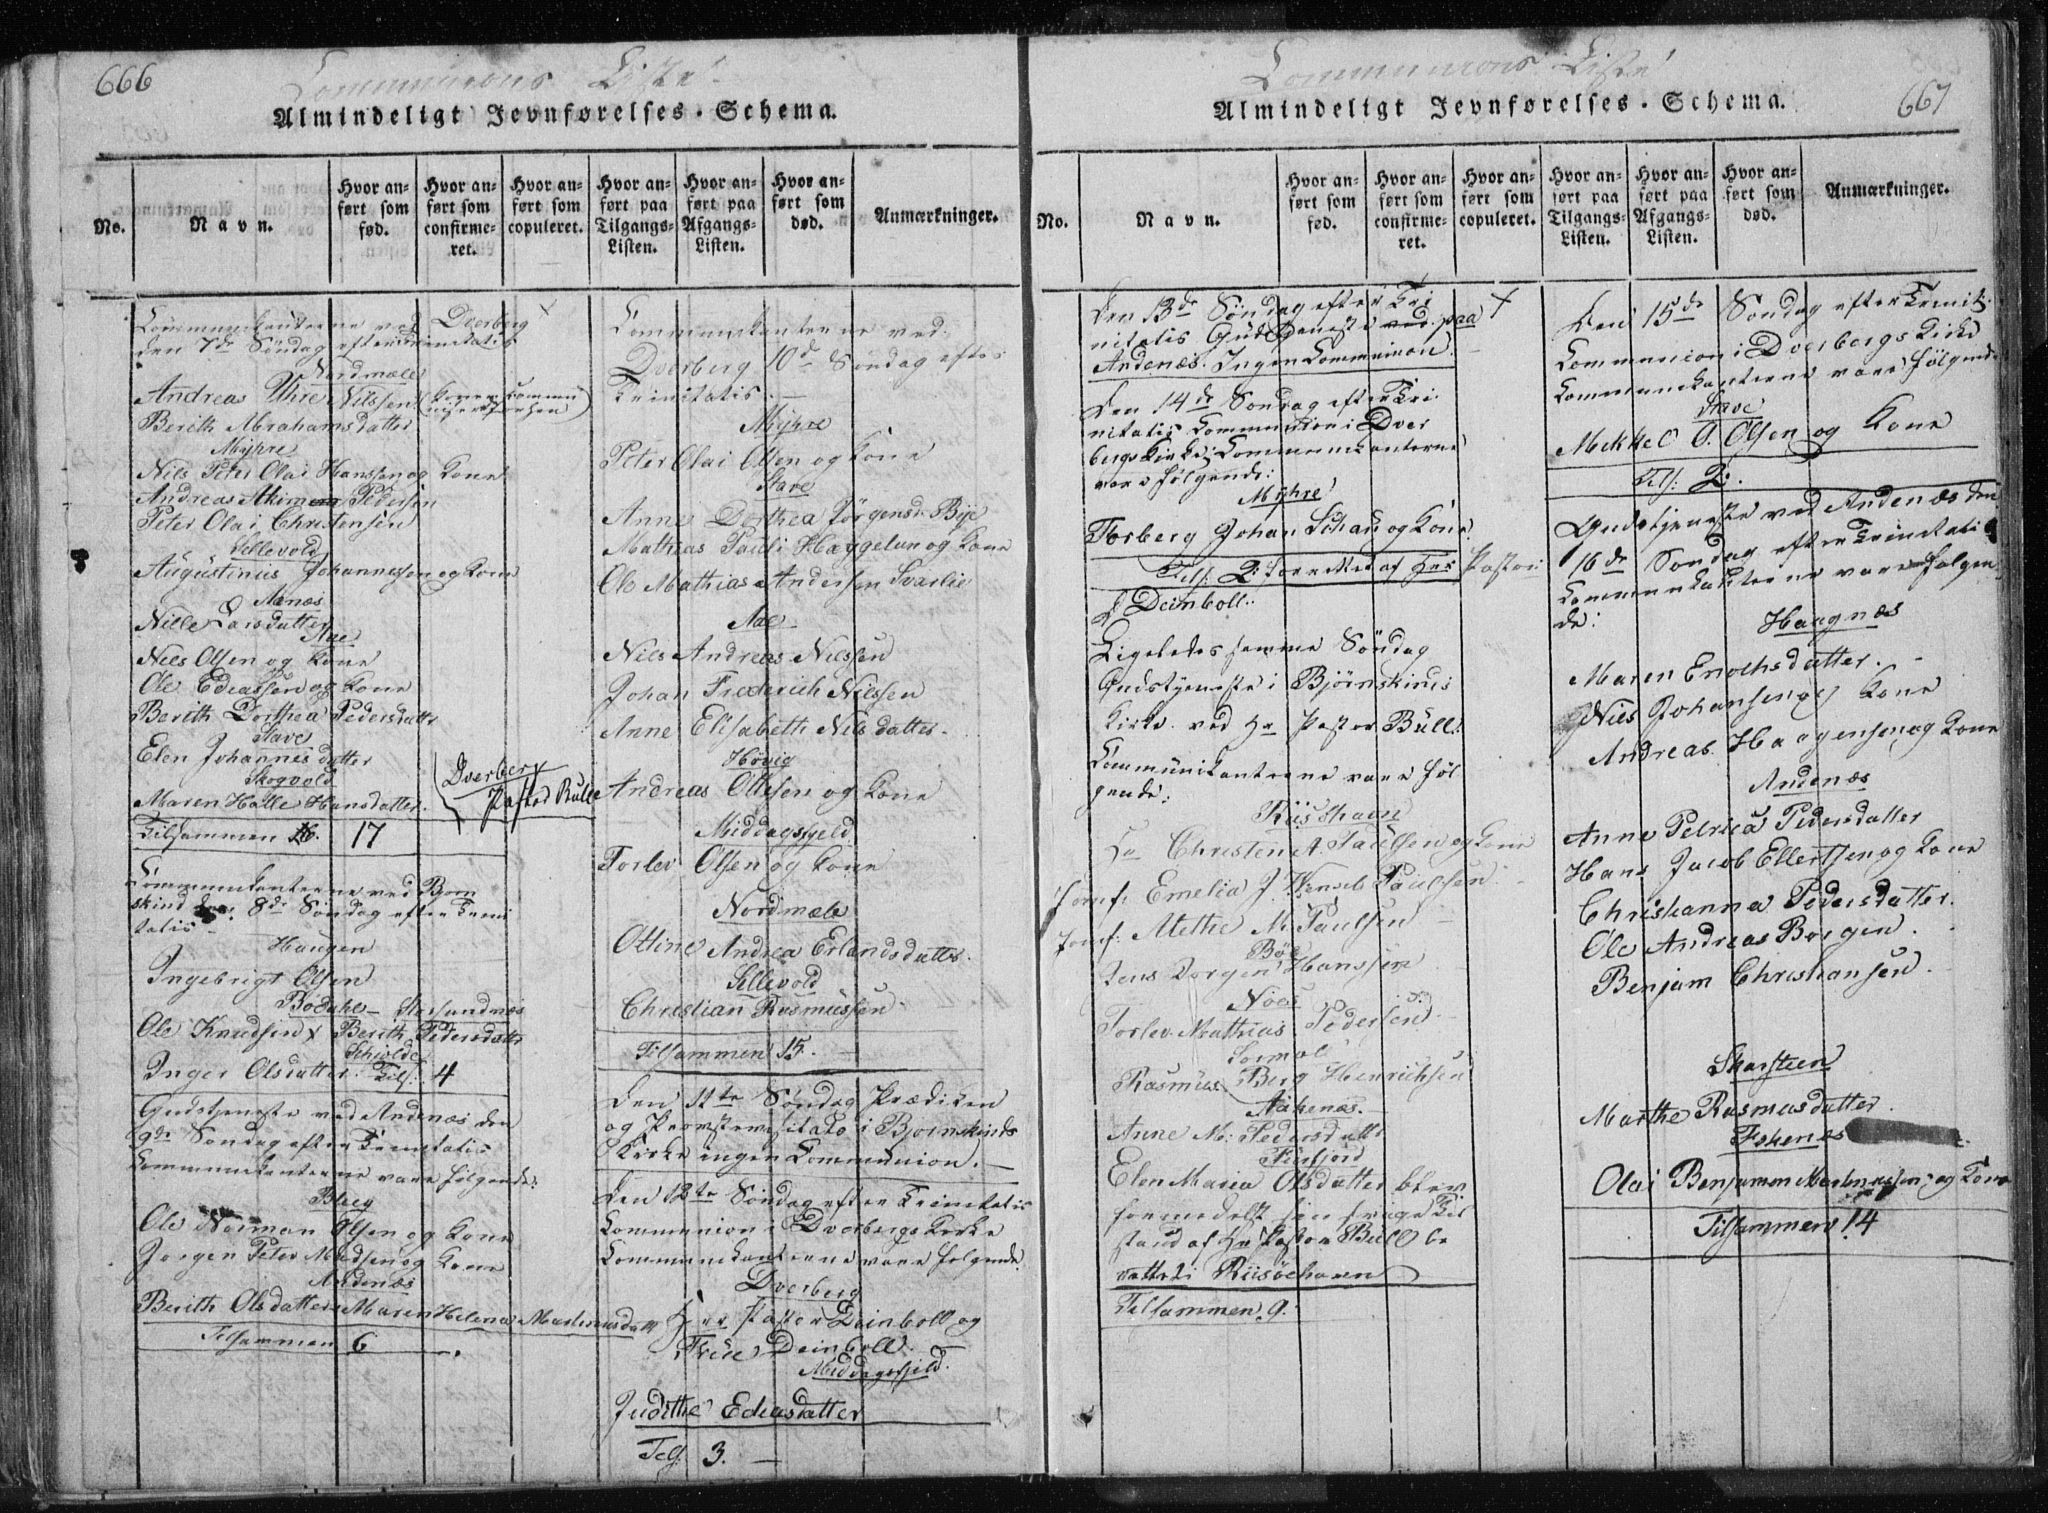 666
Communions Liste
Almindeligt Jevnførelses-Schema.
No.
Navn.
Hvor anført som fød.
Hvor anført som confirmeret.
Hvor anført som copuleret.
Hvor anført paa Tilgangs-Listen.
Hvor anført paa Afgangs-Listen.
Hvor anført som død.
Anmærkninger.
Communikanterne ved Dverberg
den 7de Søndag efter Trinitatis
Nordmæle
Andrea Uhre Nilssen
Berith Abrahamsdatter
Myhre
Nils Peter Olai Hanssen og Kone
Andreas Akimen Pedersen
Peter Olai Christensen
Sellevold
Augustinus Johannessen og Kone
Aanæs
Nille Larsdatter
Aae
Niels Olsen og Kone
Ole Ediassen og Kone
Berith Dorthea Pedersdattr
Stave
Elen Johannesdatter
Skogvold
Maren Halle Hansdatter.
Dverberg
Pastor Bull
Tilsammen 16. 17
Communikanterne ved Bjørn
skind den 8de Søndag efter Trini
tatis
Haugen
Ingebrigt Olsen
Ole Knudsen x Berith Pedersdattr
Inger Olsdatter. Tils: 4
Gudstjeneste ved Andenæs den
9de Søndag efter Trinitatis
Communikanterne vare følgende:
Bleeg
Ole Norman Olsen og Kone
Jørgen Peter Madsen og Kone
Andenæs
Berith Olsdatter Maren Helena Martinusdatt
Tilsammen 6.
Communikanterne ved
Dverberg 10de Søndag efter
Trinitatis.
Myhre
Peter Olai Olsen og Kone
Stave
Anne Dorthea Jørgensd. Bye
Mathias Pauli Haggelun og Kone
Ole Mathias Andersen Svarlie
Aae
Niels Andreas Nilssen
Johan Frederich Nilssen
Anne Elisabeth Nilsdatter.
Høvig
Andreas Ottesen og Kone
Middagsfjeld
Torlev Olsen og Kone
Nordmæle
Ottine Andrea Erlandsdatter.
Sellevold
Christian Rasmussen
Tilsammen 15.
Den 11te Søndag Prædiken
og Provstevisitats i Bjørnskinds
Kirke ingen Communion.
Den 12te Søndag efter Trinitatis
Communion i Dverbergs Kirke
Communikanterne vare følgende:
Dverberg
Herr Pastor Deinboll og
Frue Deinboll.
Middagsfjeld.
Judithe Ediasdatter
Tils 3.
Communions Liste
667
Almindeligt Jevnførelses-Schema.
No.
Navn.
Hvor anført som fød.
Hvor anført som confirmeret.
Hvor anført som copuleret.
Hvor anført paa Tilgangs-Listen.
Hvor anført paa Afgangs-Listen.
Hvor anført som død.
Anmærkninger.
Den 13de Søndag efter Tri
nitatis Gudstjeneste ved paa
Andenæs. Ingen Communion.
Den 14de Søndag efter Tri
nitatis Communion i Dver
bergs Kirke, Communikanterne
vare følgende:
Myhre
Torberg Johan Schau og Kone
Tils: 2: forrettet af Herr Pastor
Deinboll.
Ligeledes samme Søndag
Gudstjeneste i Bjørnskinds
Kirke ved Hr Pastor Bull.
Communikanterne vare føl
gende:
Riisøhavn
Christen A. Paulsen og Kone
Jomf: Emelia J. Wensel Paulsen
Jomf: Methe M. Paulsen
Bøe
Jens Jørgen Hanssen
Nøss
Torlev Mathias Pedersen
Rasmus Berg Henrichsen
Aakenæs.
Anne M: Pedersdattr
Finfjord
Elen Maria Olsdatter blev
formedelst sin svage Til
stand af Hr Pastor Bull be
rettet i Riisøehavn
Tilsammen 9.
Den 15de Søndag efter Trinit:
Communion i Dverbergs Kirke
Communikanterne vare følgende
Stave
Mekkel O. Olsen og Kone
Tils: 2.
Gudstjeneste ved Andenæs den
16de Søndag efter Trinitatis
Communikanterne vare følgen
de:
Haugnæs
Maren Enochsdatter.
Niels Johansen og Kone
Andreas Haagensen og Kone
Andenæs
Anne Petrica Pedersdatter
Hans Jacob Ellertsen og Kone
Christianna Pedersdatter.
Ole Andreas Borgen.
Benjam Christiansen.
Skarsteen
Marthe Rasmusdatter
Olai Benjamen Martinussen og Kone
Tilsammen 14